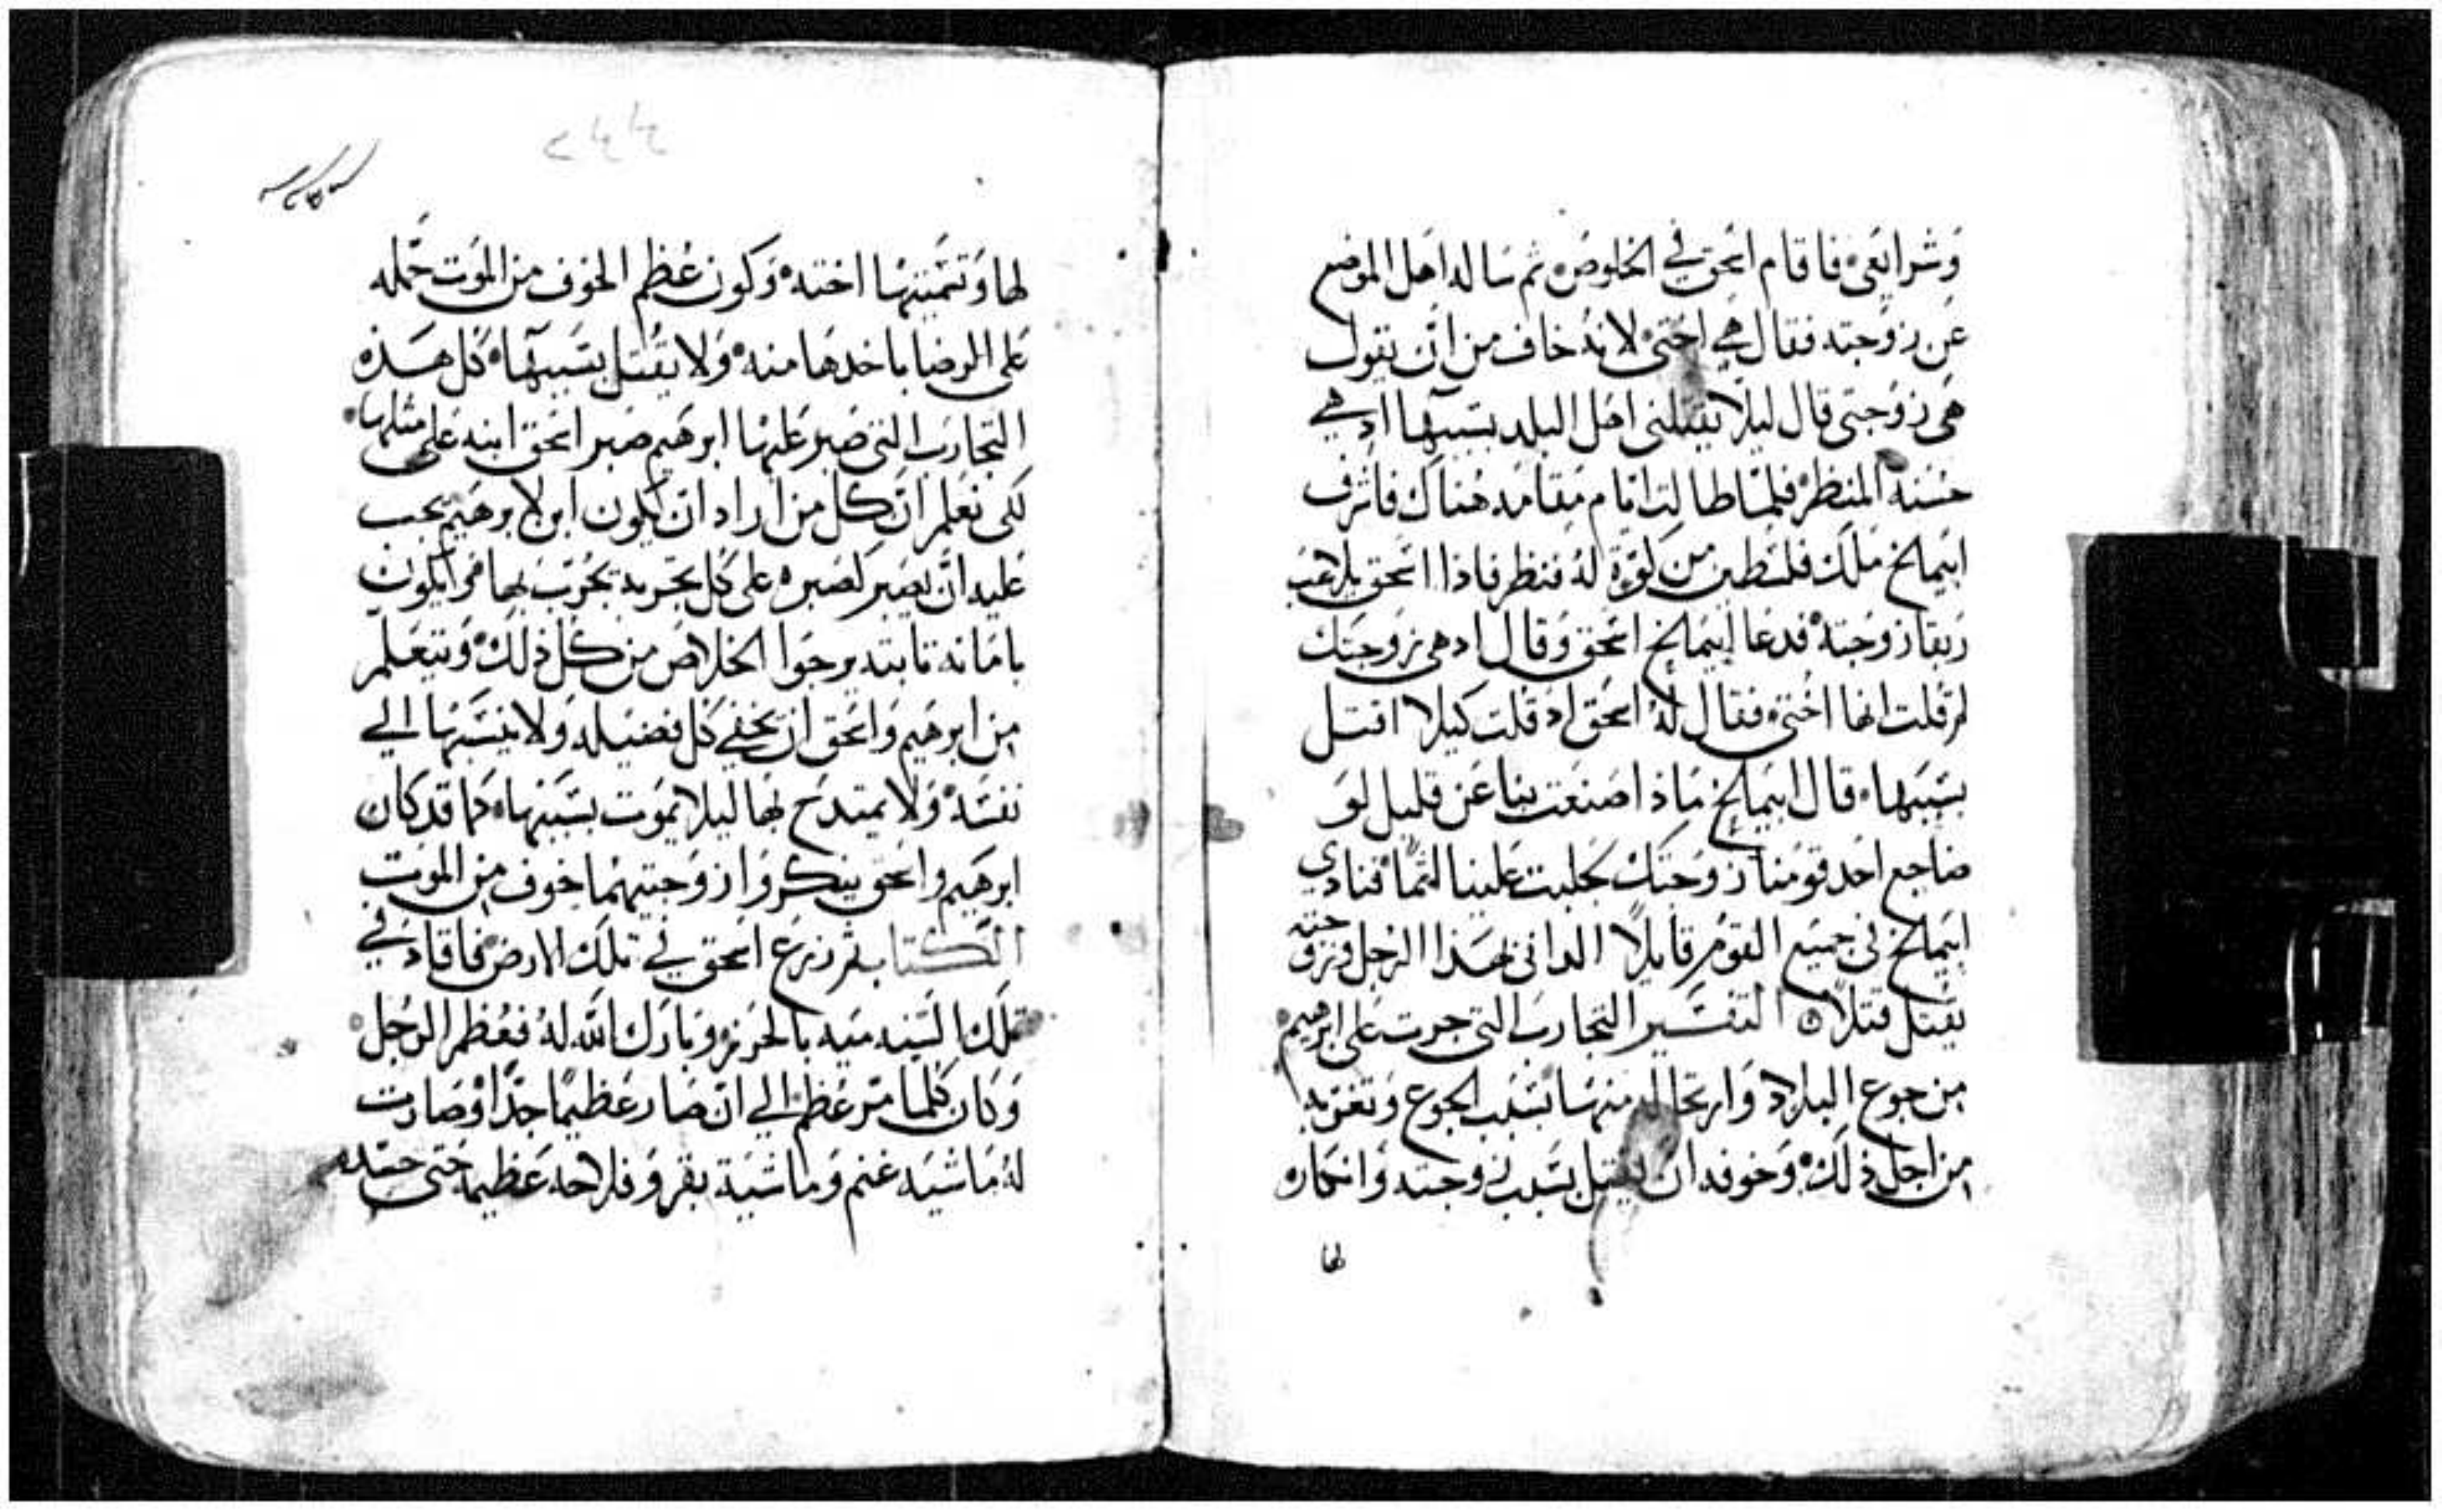 وَشرايعَى فاقام اسحق في الخلوص ثم ساله اهل الموضع
عن زوجته فقال هي اختى لانه خاف من ان يقول
هى زوجتى قال ليلا يقتلنى اهل البلد بسببها اد هي
حسنة المنظر فلما طالت ايام مقامه هناك فاشرف
ابيمالخ ملك فلسطين من كوة له فنظر فاذا اسحق يلاعب
ربقا زوجته فدعا ابيمالخ اسحق وقال اد هى زوجتك
لم قلت انها اختى فقال له اسحق اد قلت كيلا اقتل
بسببها قال ابيمالخ ماذا صنعت بنا عن قليل لو
ضاجع احد قومنا زوجتك لجلبت علينا اثما فنادي
ابيمالخ في جميع القوم قايلا الدانى لهذا الرجل وزوجته
يقتل قتلا التفسير التجارب التى جرت على ابرهيم
من جوع البلاد وارتحاله منها بسبب الجوع وتغربه
من اجل ذلك وخوفه ان يقتل بسبب زوجته وانكاره
لها
لها وتسميتها اخته وكون عظم الخوف من الموت حمله
على الرضا باخدها منه ولا يقتل بسببها كل هذه
التجارب التى صبر عليها ابرهيم صبر اسحق ابنه على مثلها
لكى نعلم ان كل من اراد ان يكون ابن لابرهيم يجب
عليه ان يصبر كصبره على كل تجربه يجرب بها مرا يكون
بامانه تابته يرجوا الخلاص من كل ذلك ونتعلم
من ابرهيم واسحق ان نخفي كل فضيله ولا ننسبها الي
نفسه ولا يمتدح بها ليلا يموت بسببها كما قد كان
ابرهيم واسحق ينكروا زوجتيهما خوف من الموت
الكتاب ثم زرع اسحق في تلك الارض فاقاد في
تلك السنه ميه بالحزر وبارك الله له فعظم الرجل
وكان كلما مر عظم الي ان صار عظيما جدا وصارت
له ماشيه غنم وماشية بقر وفلاحه عظيمة حتى حسده